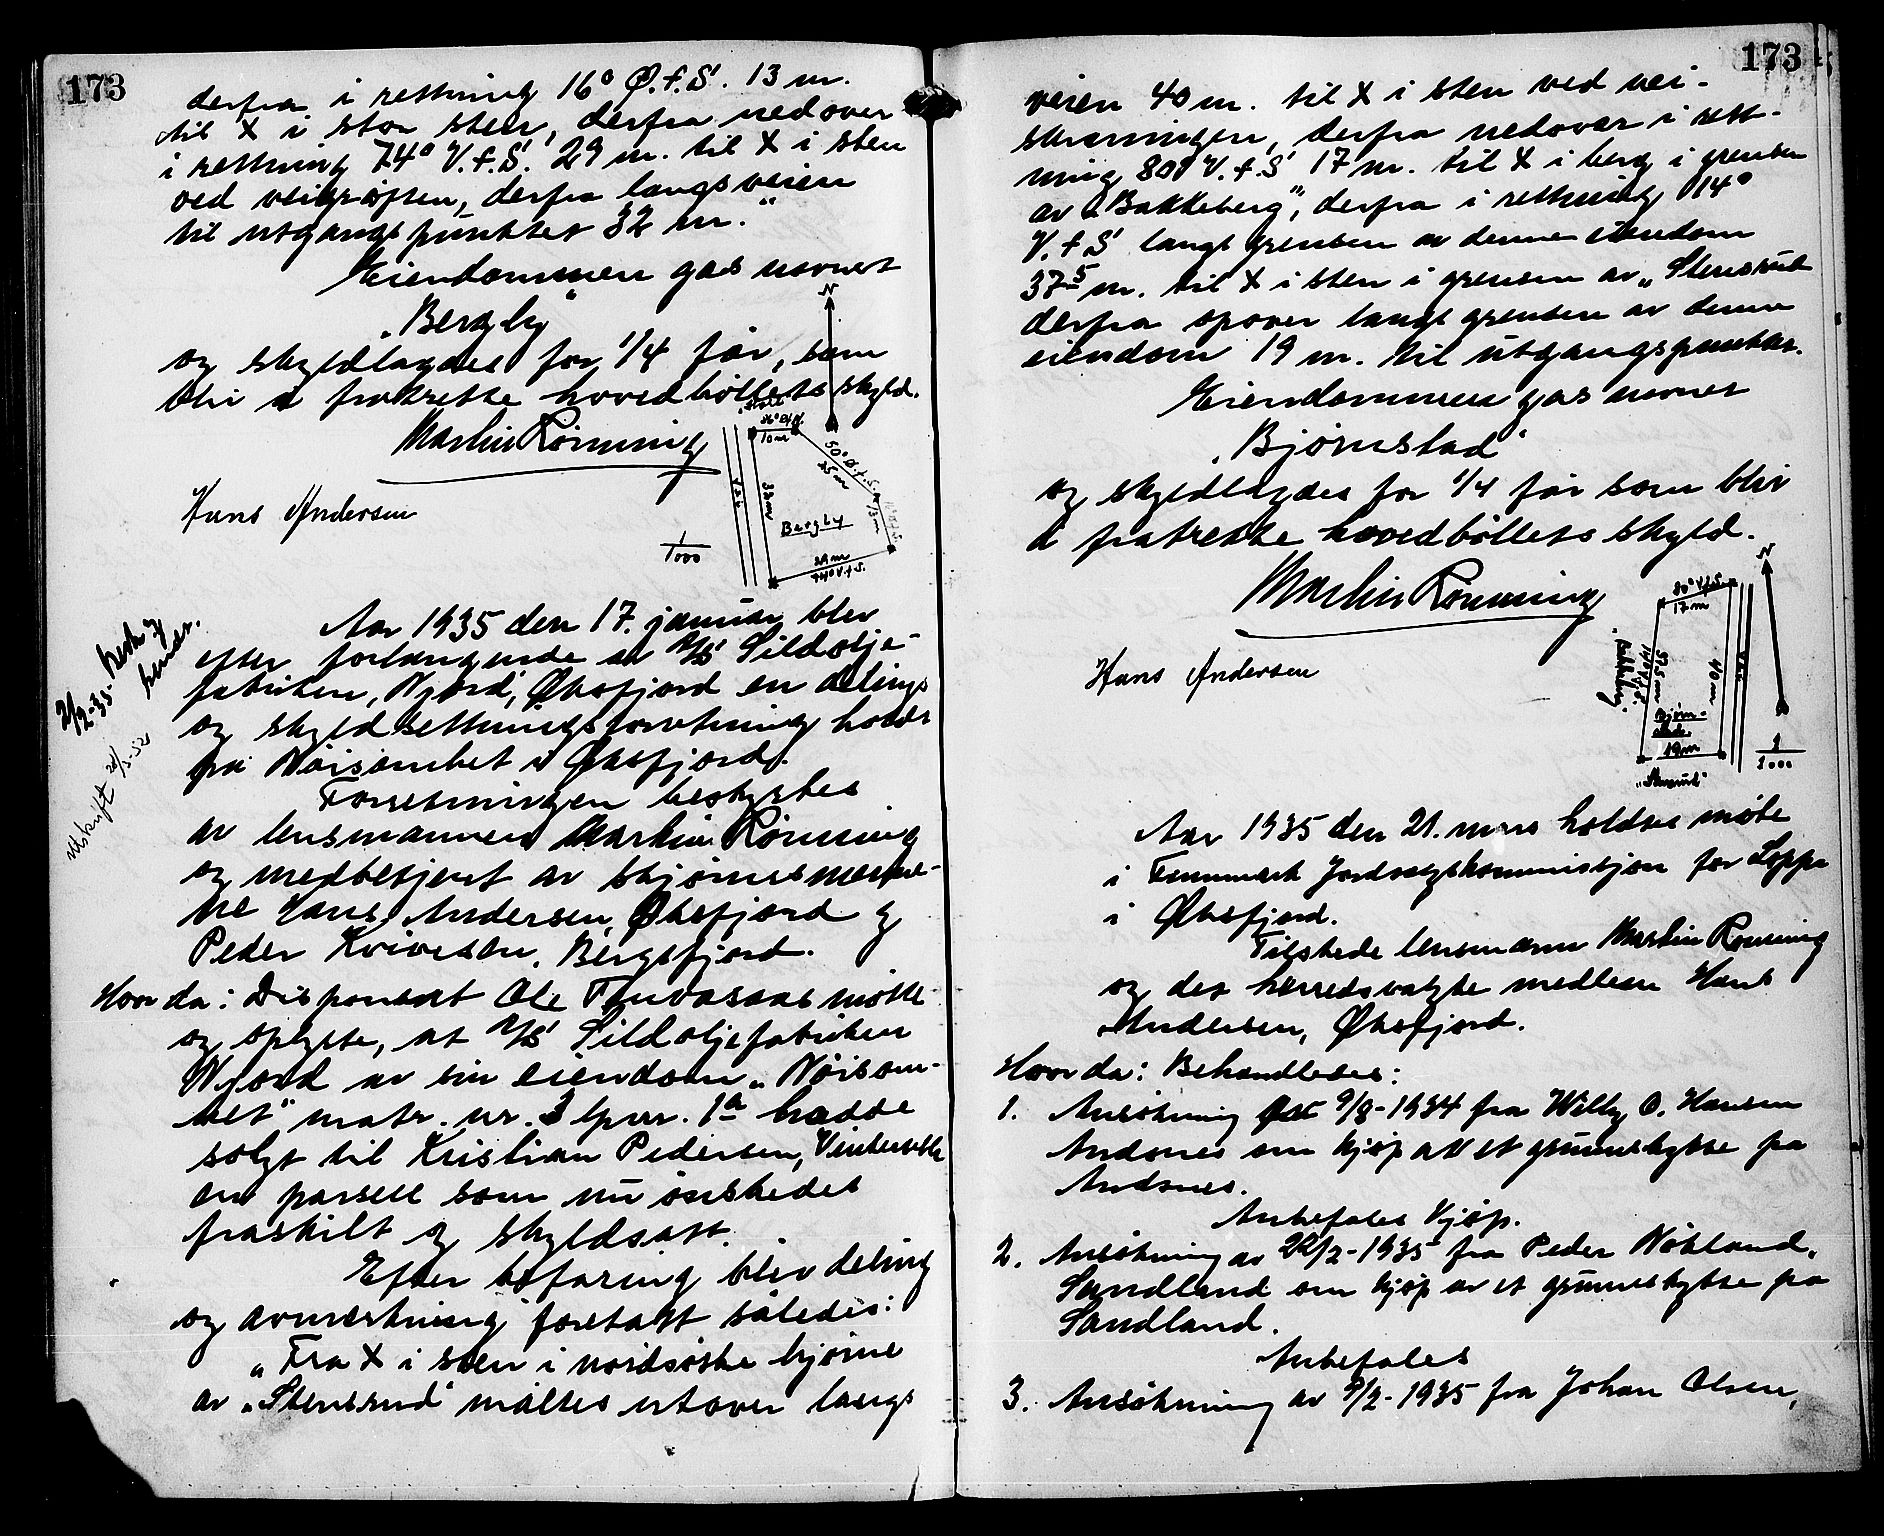 173
derfra i rettning 16° Ø.f.S. 13 m.
til X i stor sten, derfra nedover
i rettning 74° V.f.S. 29 m. til X i sten
ved veigrøften, derfra langs veien
til utgangspunktet 32 m."
Eiendommen gaes navnet
"Bergby"
og skyldlagdes for 1/4 før, som
blir å fratrekke hovedbøllets skyld.
Martin Rønning
Hans Andersen
N
10 m
60° Ø.f.S.
25 m
13 m
32 m
Vei
Bergby
29 m
74° V.f.S.
1/1000
Aar 1935 den 17. januar blev
efter forlangende av A/S Sildolje-
fabriken "Njord", Øksfjord en delings
og skyldsettningsforretning holdt
på Nøisomhet i Øksfjord.
Forretningen bestyrtes
av lensmannen Martin Rønning
og medbetjent av skjønnsmenne-
ne Hans Andersen, Øksfjord og
Peder Kvivesen, Bergsfjord.
2/2-35.
Utskrift 20/3-52
Hvor da: Disponent Ole møtte
og oplyste, at A/S Sildoljefabriken
Njord av sin eiendom "Nøisom-
het" matr. nr. 3 lpnr. 1a hadde
solgt til Kristian Pedersen,
en parsell som nu ønskedes
fraskilt og skyldsatt.
Efter befaring blev deling
og avmerkning foretatt således:
"Fra X i sten i nordøstre hjørne
av "Stensrud" måltes utover langs
173
veien 40 m. til X i sten ved vei-
skraaningen, derfra nedover i rett-
ning 80° V.f.S 17 m. til X i berg i grensen
av "Bakkeberg", derfra i rettning 14°
V.f.S langs grensen av denne eiendom
37⁵ m. til X i sten i grensen av "Stensrud
derfra opover langs grensen av denne
eiendom 19 m. til utgangspunktet.
Eiendommen gaes navnet
"Bjørnstad"
og skyldlagdes for 1/4 før som blir
å fratrekke hovedbøllets skyld.
Martin Rønning
Hans Andersen
N
80° V.f.S.
17 m
37.5 m
14° V.f.S.
"Bakkeberg"
40 m
Vei
Bjørn-
stad.
19 m
"Stensrud"
1/1000
Aar 1935 den 21. mars holdtes møte
i Finnmark Jordsalgskommissjon for Loppa
i Øksfjord.
Tilstede lensmann Martin Rønning
og det herredsvalgte medlem Hans
Andersen, Øksfjord.
Hvor da: Behandledes:
1. Ansøkning 9/8-1934 fra Willy O. Hansen
Andsnes om kjøp av et grunnstykke på
Andsnes.
Anbefales kjøp.
2. Ansøkning av 22/2-1935 fra Peder Nökland,
Sandland om kjøp av et grunnstykke på
Sandland.
Anbefales
3. Ansøkning av 9/2-1935 fra Johan Olsen,